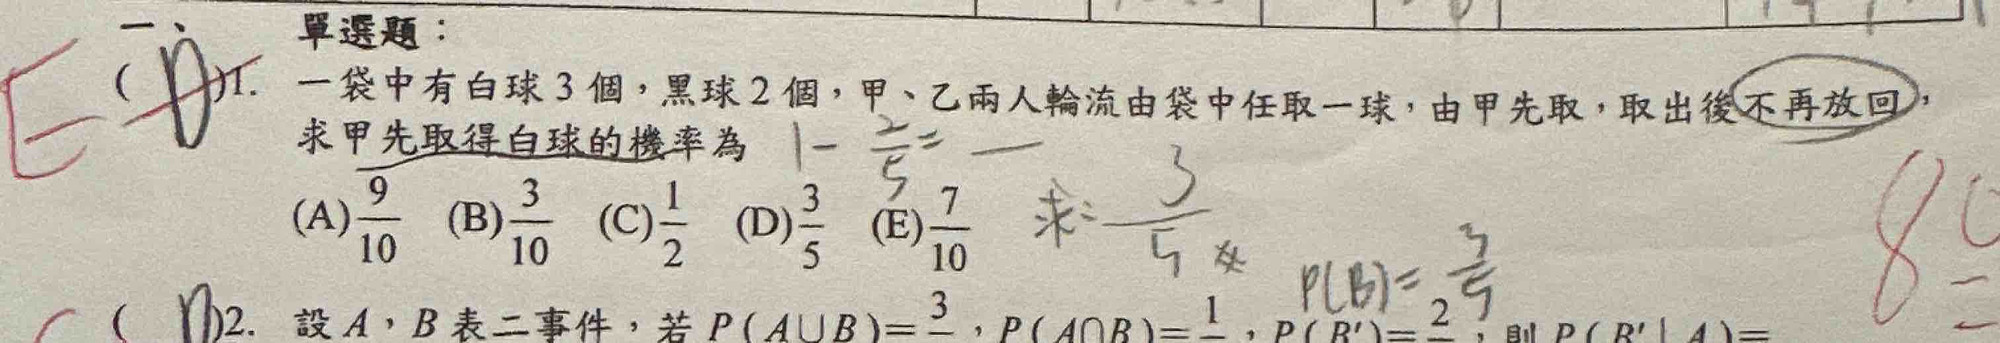 一、 單選題：
E ( D )1. 一袋中有白球 3 個，黑球 2 個，甲、乙兩人輪流由袋中任取一球，由甲先取，取出後不再放回，
求甲先取得白球的機率為 1 - 2/5 = —
(A) 9/10 (B) 3/10 (C) 1/2 (D) 3/5 (E) 7/10 求= 3/5
P(B)= 3/5
( D )2. 設 A，B 表二事件，若 P(A∪B)= 3 ，P(A∩B)= 1 ，P(B')= 2 ，則 P(B'|A)=